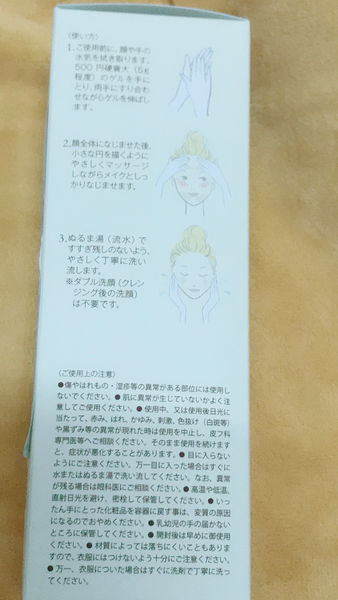 〈使い方〉
1.ご使用前に、顔や手の
水気を拭き取ります。
500円硬貨大（5g
程度）のゲルを手に
とり、両手にすり合わ
せながらゲルを伸ばし
ます。
2.顔全体になじませた後、
小さな円を描くように
やさしくマッサージ
しながらメイクとしっ
かりなじませます。
3.ぬるま湯（流水）で
すすぎ残しのないよう、
やさしく丁寧に洗い
流します。
※ダブル洗顔（クレン
ジング後の洗顔）
は不要です。
〈ご使用上の注意〉
●傷やはれもの・湿疹等の異常がある部位には使用し
ないでください。●肌に異常が生じていないかよく注
意してご使用ください。●使用中、又は使用後日光に
当たって、赤み、はれ、かゆみ、刺激、色抜け（白斑等）
や黒ずみ等の異常が現れた時は使用を中止し、皮フ科
専門医等へご相談ください。そのまま使用を続けます
と、症状が悪化することがあります。●目に入らない
ようにご注意ください。万一目に入った場合はすぐに
水またはぬるま湯で洗い流してください。なお、異常
が残る場合は眼科医にご相談ください。●高温や低温、
直射日光を避け、密栓して保管してください。●いっ
たん手にとった化粧品を容器に戻す事は、変質の原因
になるのでおやめください。●乳幼児の手の届かない
ところに保管してください。●開封後は早めに御使用
ください。●材質によっては落ちにくいこともありま
すので、衣服にはつけないよう十分にご注意ください。
●万一、衣服についた場合はすぐに洗剤で丁寧に洗っ
てください。